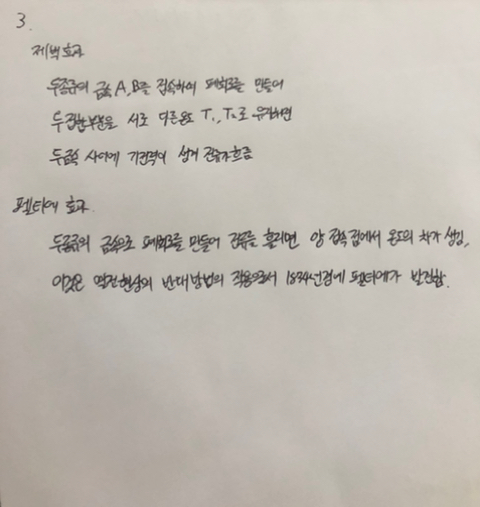 3.
제벡효과
두종류의 금속 A, B를 접속하여 폐회로를 만들어
두접합부분을 서로 다른온도 T₁, T₂로 유지하면
두금속 사이에 기전력이 생겨 전류가흐름
펠티에 효과.
두종류의 금속으로 폐회로를 만들어 전류를 흘리면 양 접속점에서 온도의 차가 생김,
이것은 열전현상의 반대방법의 작용으로서 1834년경에 펠티에가 발견함.